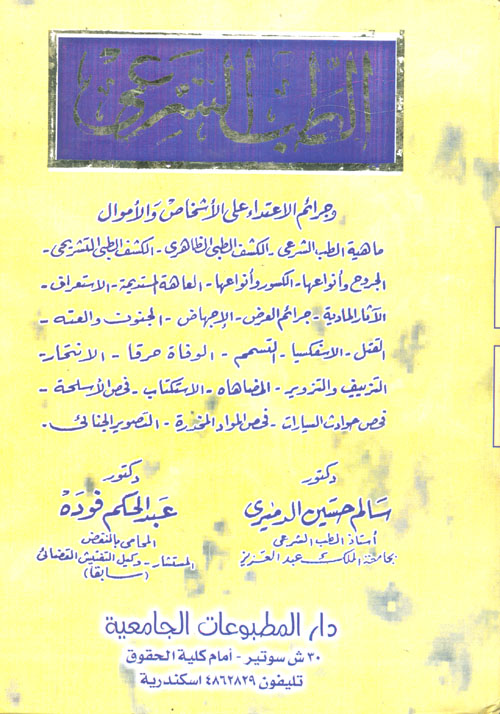 الطب الشرعي
وجرائم الاعتداء على الأشخاص والأموال
ماهية الطب الشرعي - الكشف الطبي الظاهري - الكشف الطبي التشريحي -
الجروح وأنواعها - الكسور وأنواعها - العاهة المستديمة - الاستعراف -
الآثار المادية - جرائم العرض - الإجهاض - الجنون والعته -
القتل - الاسفكسيا - التسمم - الوفاة حرقا - الانتحار -
التزييف والتزوير - المضاهاه - الاستكتاب - فحص الأسلحة -
فحص حوادث السيارات - فحص المواد المخدرة - التصوير الجنائى -
دكتور
سالم حسين الدميرى
أستاذ الطب الشرعى
بجامعة الملك عبد العزيز
دكتور
عبد الحكم فودة
المحامى بالنقض
المستشار - وكيل التفتيش القضائى
(سابقا)
دار المطبوعات الجامعية
٣٠ ش سوتير - أمام كلية الحقوق
تليفون ٤٨٦٢٨٢٩ اسكندرية